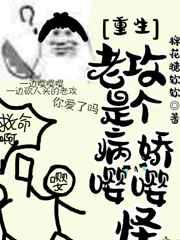 [重生]
老攻
是个
病娇
嘤嘤
怪
棉花糖
◎著
一边嘤嘤嘤
一边砍人头的老攻
你爱了吗
救命
啊
嘤